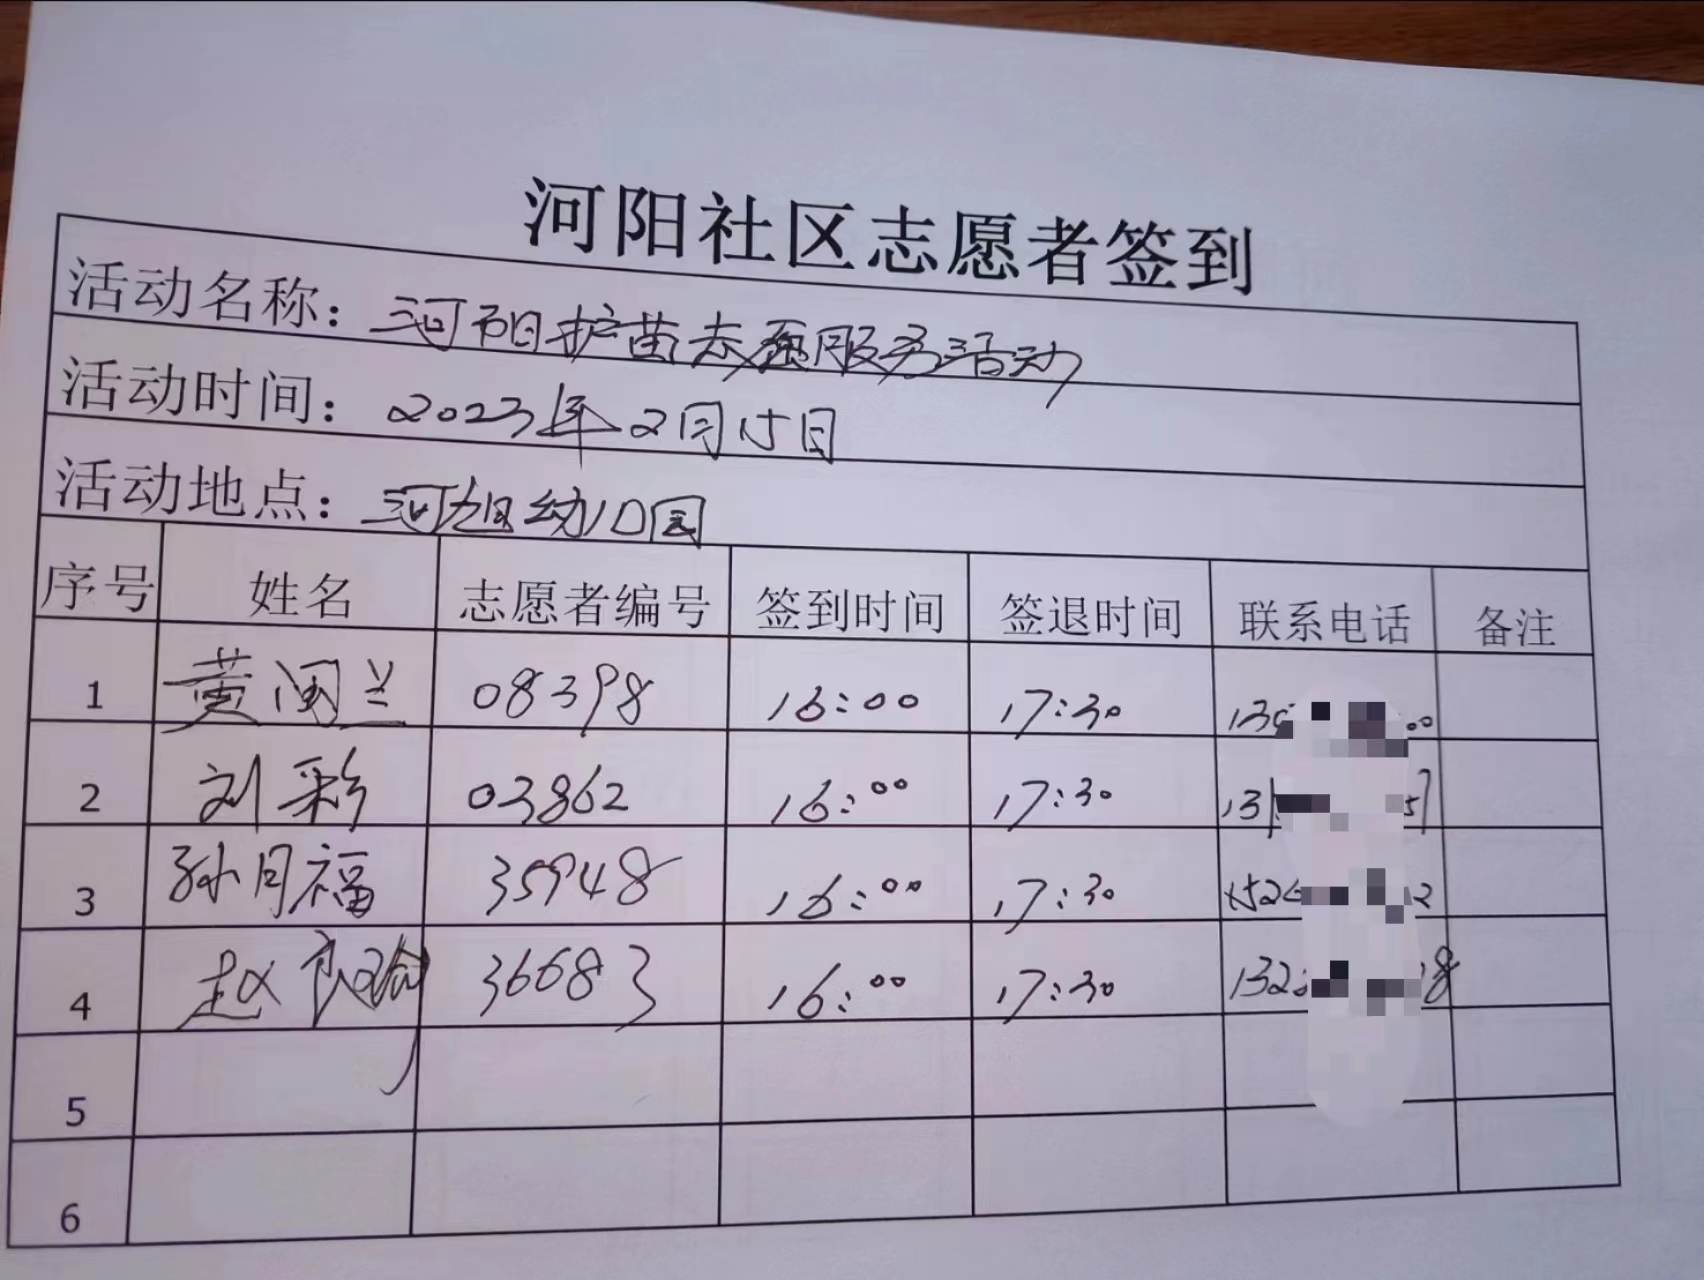 河阳社区志愿者签到
活动名称：河阳护苗志愿服务活动
活动时间：2023年2月15日
活动地点：河旭幼儿园
序号 姓名 志愿者编号 签到时间 签退时间 联系电话 备注
1 黄闽兰 08398 16:00 17:30 00
2 刘彩 03862 16:00 17:30 13 57
3 孙月福 35948 16:00 17:30 152 2
4 赵良瑜 36683 16:00 17:30 132 8
5
6